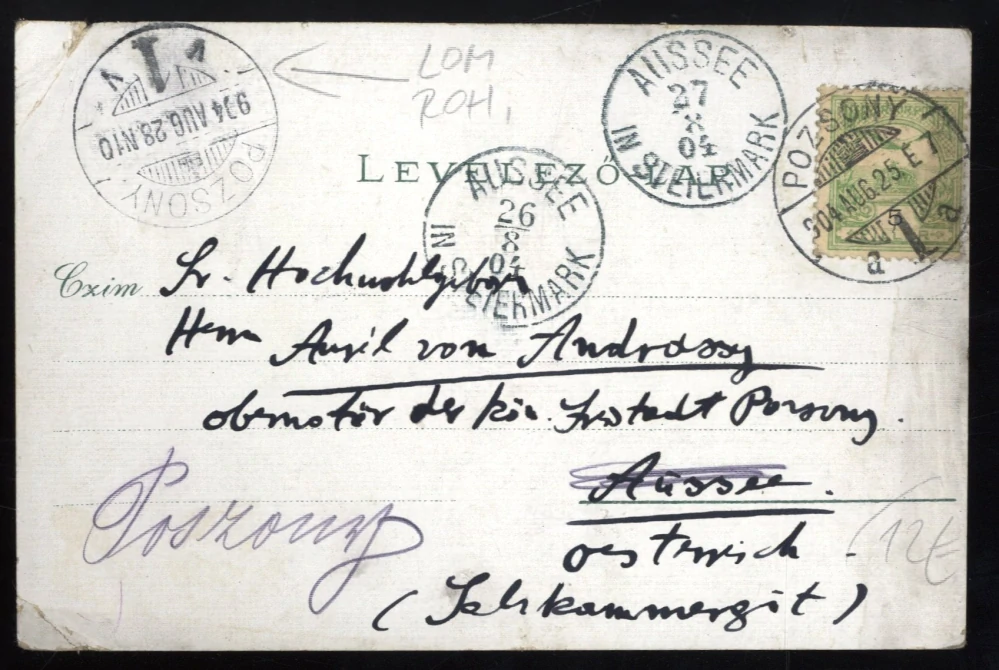 1
POZSONY
904 AUG. 28. N10
LOM
ROH.
AUSSEE
27
8
04
IN STEIERMARK
POZSONY
904 AUG. 25 E 7
1
a a
5
LEVELEZŐ-LAP
AUSSEE
26
8
04
IN STEIERMARK
Czim Sr. Hochwohlgeborn
Herrn Auril von Andrássy
obernotär der kön. Freistadt Pozsony.
Aussee.
Poszony
oesterreich
(Salzkammergut)
12€